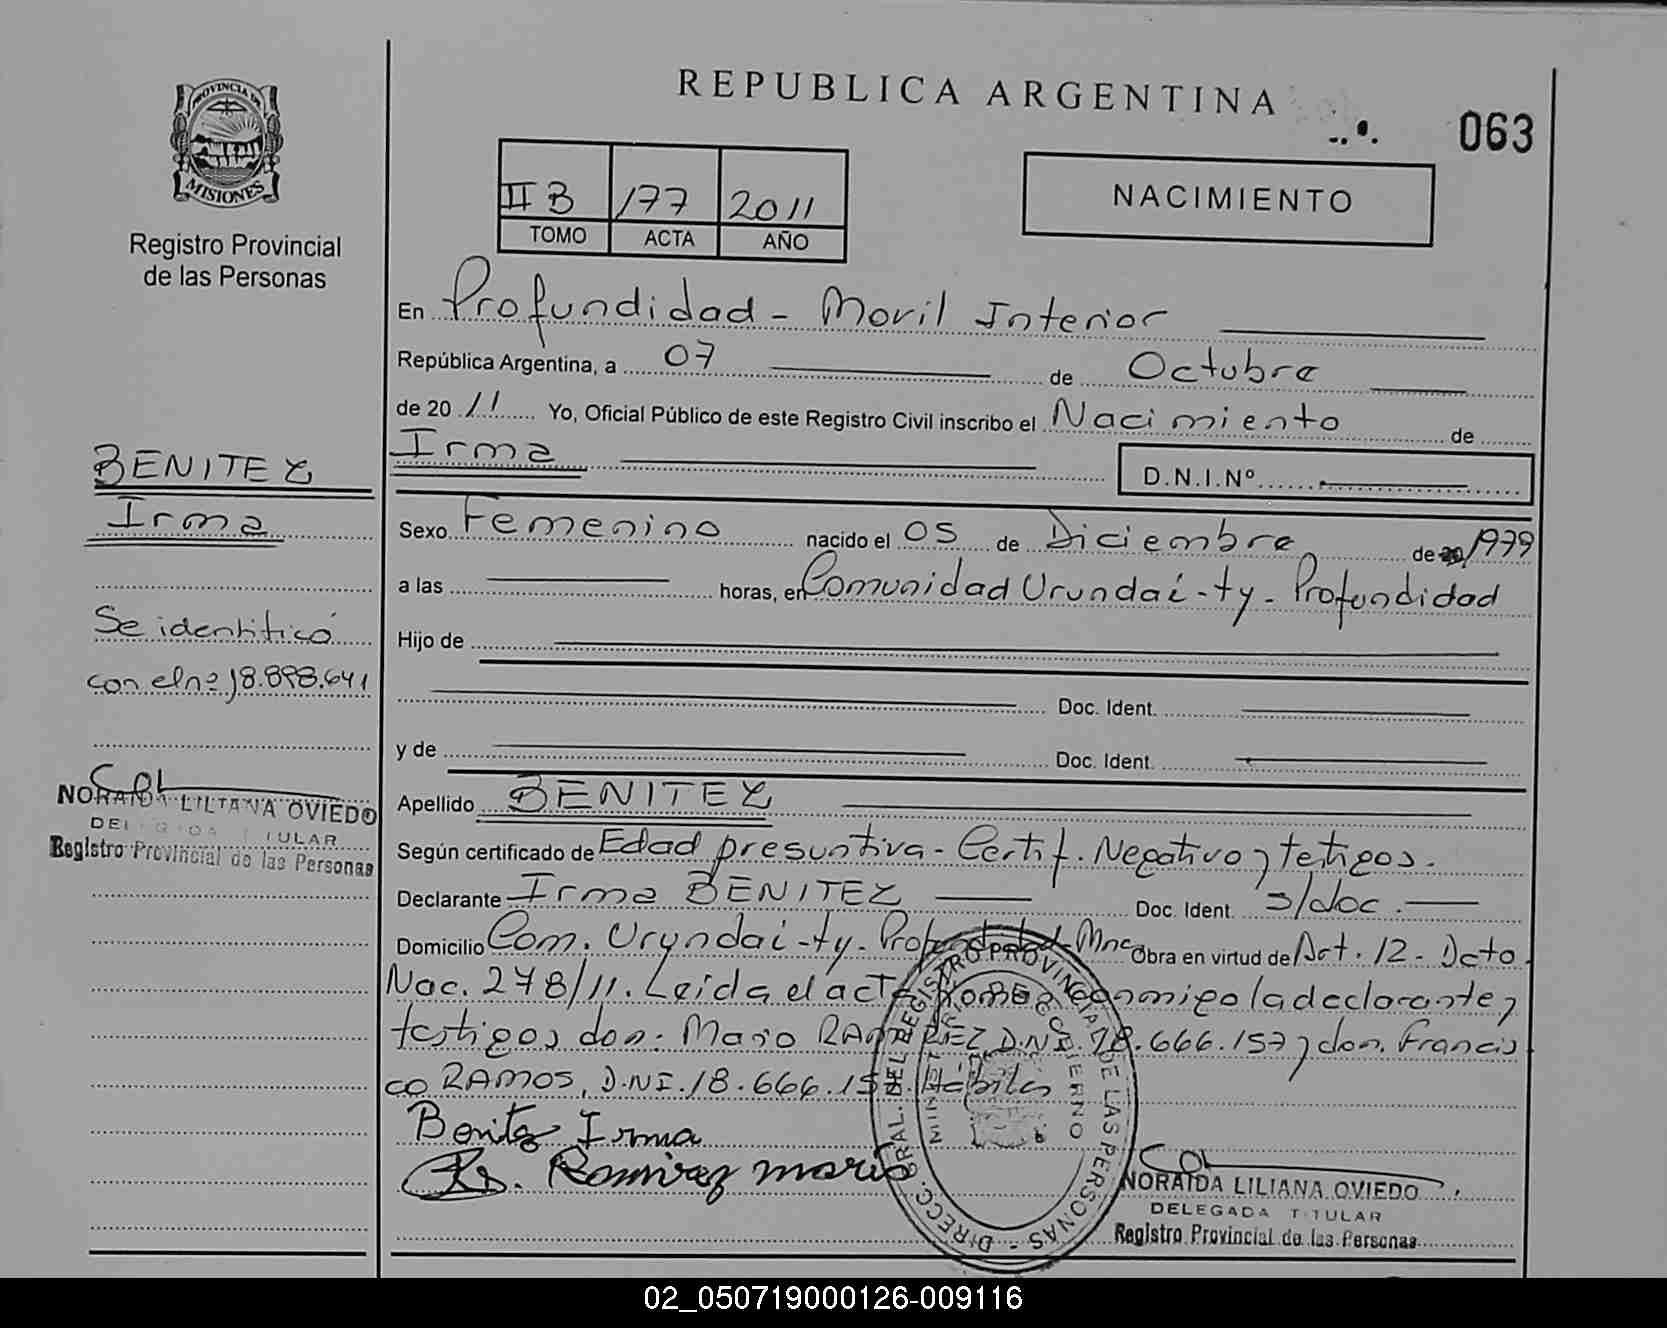 REPUBLICA ARGENTINA
063
PROVINCIA DE
MISIONES
Registro Provincial
de las Personas
II B 177 2011
TOMO ACTA AÑO
NACIMIENTO
En Profundidad - Movil Interior
República Argentina, a 07 de Octubre
de 20 11 Yo, Oficial Público de este Registro Civil inscribo el Nacimiento de
Irma D.N.I.Nº
BENITEZ
Irma
Sexo Femenino nacido el 05 de Diciembre de 1979
a las horas, en Comunidad Urundaí-ty - Profundidad
Hijo de
Se identificó
con el nº 18.898.641
Doc. Ident.
y de Doc. Ident.
NORAIDA LILIANA OVIEDO
DELEGADA TITULAR
Registro Provincial de las Personas
Apellido BENITEZ
Según certificado de Edad presuntiva - Certif. Negativo y testigos.
Declarante Irma BENITEZ Doc. Ident. s/doc.
Domicilio Com. Urundaí-ty - Profundidad - Mnes Obra en virtud de Art. 12 - Dcto.
Nac. 278/11. Leida el acta firman conmigo la declarante y
testigos don: Mario RAMIREZ D.N.I. 18.666.157 y don. Francis
co RAMOS, D.N.I. 18.666.15 Hábiles
Benitez Irma
Ramirez mario
DIRECC. GRAL. DEL REGISTRO PROVINCIAL DE LAS PERSONAS
MINISTERIO DE GOBIERNO
NORAIDA LILIANA OVIEDO
DELEGADA TITULAR
Registro Provincial de las Personas
02_050719000126-009116